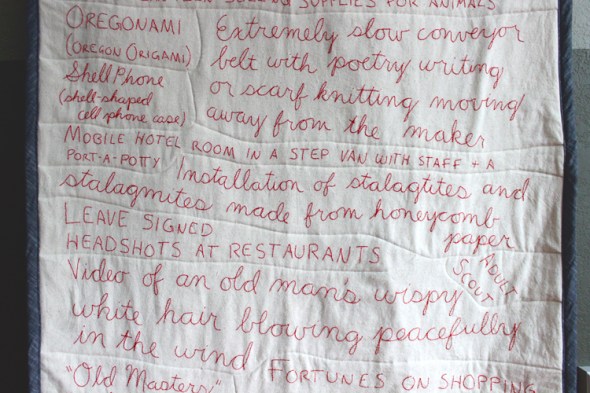 SUPPLIES FOR ANIMALS
OREGONAMI
(OREGON ORIGAMI)
Shell Phone
(shell-shaped
cell phone case)
Extremely slow conveyor
belt with poetry writing
or scarf knitting moving
away from the maker
MOBILE HOTEL ROOM IN A STEP VAN WITH STAFF + A
PORT-A-POTTY
Installation of stalagtites and
stalagmites made from honeycomb
paper
LEAVE SIGNED
HEADSHOTS AT RESTAURANTS
ADULT
SCOUT
Video of an old man's wispy
white hair blowing peacefully
in the wind
"Old Masters"
FORTUNES ON SHOPPING